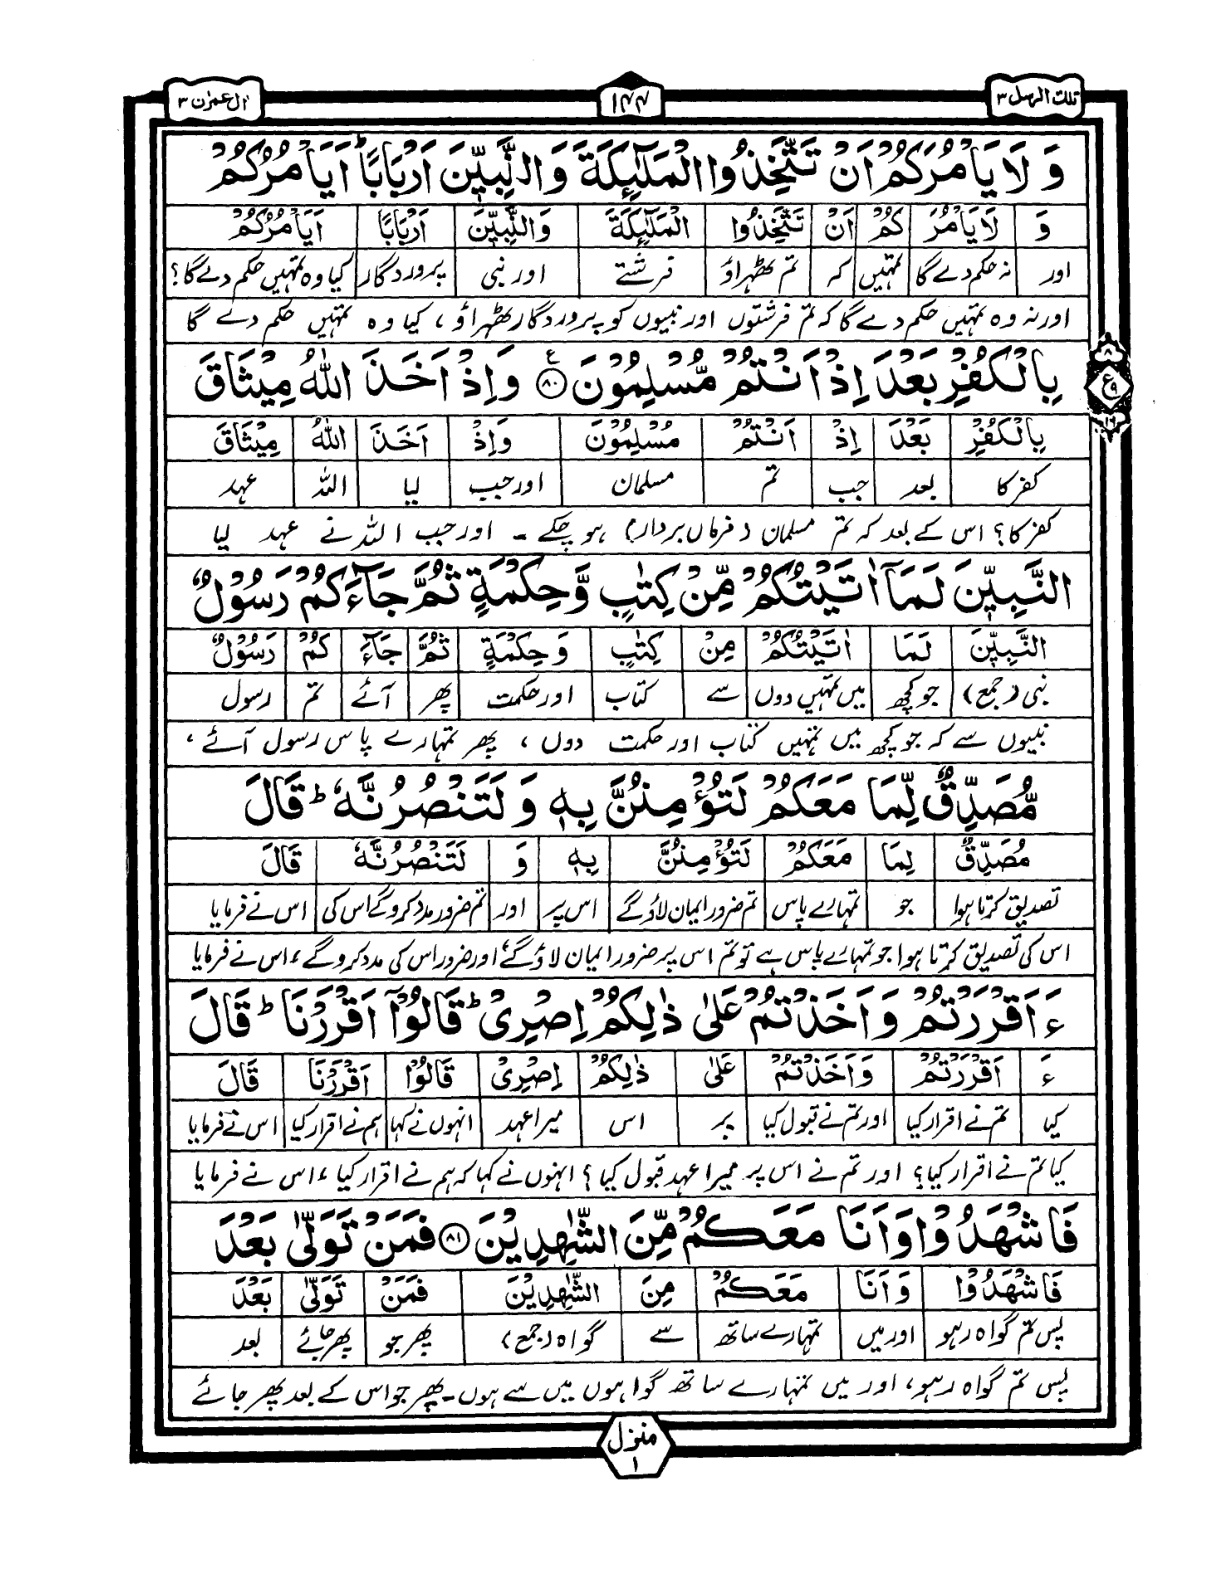 تلك الرسل ٣
١٤٤
اٰل عمرٰن ٣
وَ لَا يَاۡمُرَكُمۡ اَنۡ تَتَّخِذُوا الۡمَلٰٓئِكَةَ وَالنَّبِيّٖنَ اَرۡبَابًا ؕ اَيَاۡمُرُكُمۡ
وَ لَا يَاۡمُرَ كُمۡ اَنۡ تَتَّخِذُوا الۡمَلٰٓئِكَةَ وَالنَّبِيّٖنَ اَرۡبَابًا اَيَاۡمُرُكُمۡ
اور نہ حکم دے گا تمہیں کہ تم ٹھہراؤ فرشتے اور نبی پروردگار کیا وہ تمہیں حکم دے گا؟
اور نہ وہ تمہیں حکم دے گا کہ تم فرشتوں اور نبیوں کو پروردگار ٹھہراؤ ، کیا وہ تمہیں حکم دے گا
بِالۡكُفۡرِ بَعۡدَ اِذۡ اَنۡتُمۡ مُّسۡلِمُوۡنَ ﴿۸۰﴾ ع وَاِذۡ اَخَذَ اللّٰهُ مِيۡثَاقَ
٨
ع ٩
١٦
بِالۡكُفۡرِ بَعۡدَ اِذۡ اَنۡتُمۡ مُسۡلِمُوۡنَ وَاِذۡ اَخَذَ اللّٰهُ مِيۡثَاقَ
کفر کا بعد جب تم مسلمان اور جب لیا اللہ عہد
کفر کا؟ اس کے بعد کہ تم مسلمان (فرماں بردار) ہو چکے ۔ اور جب اللہ نے عہد لیا
النَّبِيّٖنَ لَمَاۤ اٰتَيۡتُكُمۡ مِّنۡ كِتٰبٍ وَّحِكۡمَةٍ ثُمَّ جَآءَكُمۡ رَسُوۡلٌ
النَّبِيّٖنَ لَمَا اٰتَيۡتُكُمۡ مِنۡ كِتٰبٍ وَحِكۡمَةٍ ثُمَّ جَآءَ كُمۡ رَسُوۡلٌ
نبی (جمع) جو کچھ میں تمہیں دوں سے کتاب اور حکمت پھر آئے تم رسول
نبیوں سے کہ جو کچھ میں تمہیں کتاب اور حکمت دوں ، پھر تمہارے پاس رسول آئے ،
مُّصَدِّقٌ لِّمَا مَعَكُمۡ لَتُؤۡمِنُنَّ بِهٖ وَلَتَنۡصُرُنَّهٗ ؕ قَالَ
مُصَدِّقٌ لِمَا مَعَكُمۡ لَتُؤۡمِنُنَّ بِهٖ وَ لَتَنۡصُرُنَّهٗ قَالَ
تصدیق کرتا ہوا جو تمہارے پاس تم ضرور ایمان لاؤ گے اس پر اور تم ضرور مدد کرو گے اس کی اس نے فرمایا
اس کی تصدیق کرتا ہوا جو تمہارے پاس ہے تو تم اس پر ضرور ایمان لاؤ گے اور ضرور اس کی مدد کرو گے ، اس نے فرمایا
ءَاَقۡرَرۡتُمۡ وَاَخَذۡتُمۡ عَلٰى ذٰلِكُمۡ اِصۡرِىۡ ؕ قَالُوۡۤا اَقۡرَرۡنَا ؕ قَالَ
ءَ اَقۡرَرۡتُمۡ وَاَخَذۡتُمۡ عَلٰى ذٰلِكُمۡ اِصۡرِىۡ قَالُوۡٓا اَقۡرَرۡنَا قَالَ
کیا تم نے اقرار کیا اور تم نے قبول کیا پر اس میرا عہد انہوں نے کہا ہم نے اقرار کیا اس نے فرمایا
کیا تم نے اقرار کیا؟ اور تم نے اس پر میرا عہد قبول کیا ؟ انہوں نے کہا کہ ہم نے اقرار کیا ، اس نے فرمایا
فَاشۡهَدُوۡا وَاَنَا مَعَكُمۡ مِّنَ الشّٰهِدِيۡنَ ﴿۸۱﴾ فَمَنۡ تَوَلّٰى بَعۡدَ
فَاشۡهَدُوۡا وَاَنَا مَعَكُمۡ مِنَ الشّٰهِدِيۡنَ فَمَنۡ تَوَلّٰى بَعۡدَ
پس تم گواہ رہو اور میں تمہارے ساتھ سے گواہ (جمع) پھر جو پھر جائے بعد
پس تم گواہ رہو، اور میں تمہارے ساتھ گواہوں میں سے ہوں ۔ پھر جو اس کے بعد پھر جائے
منزل
١